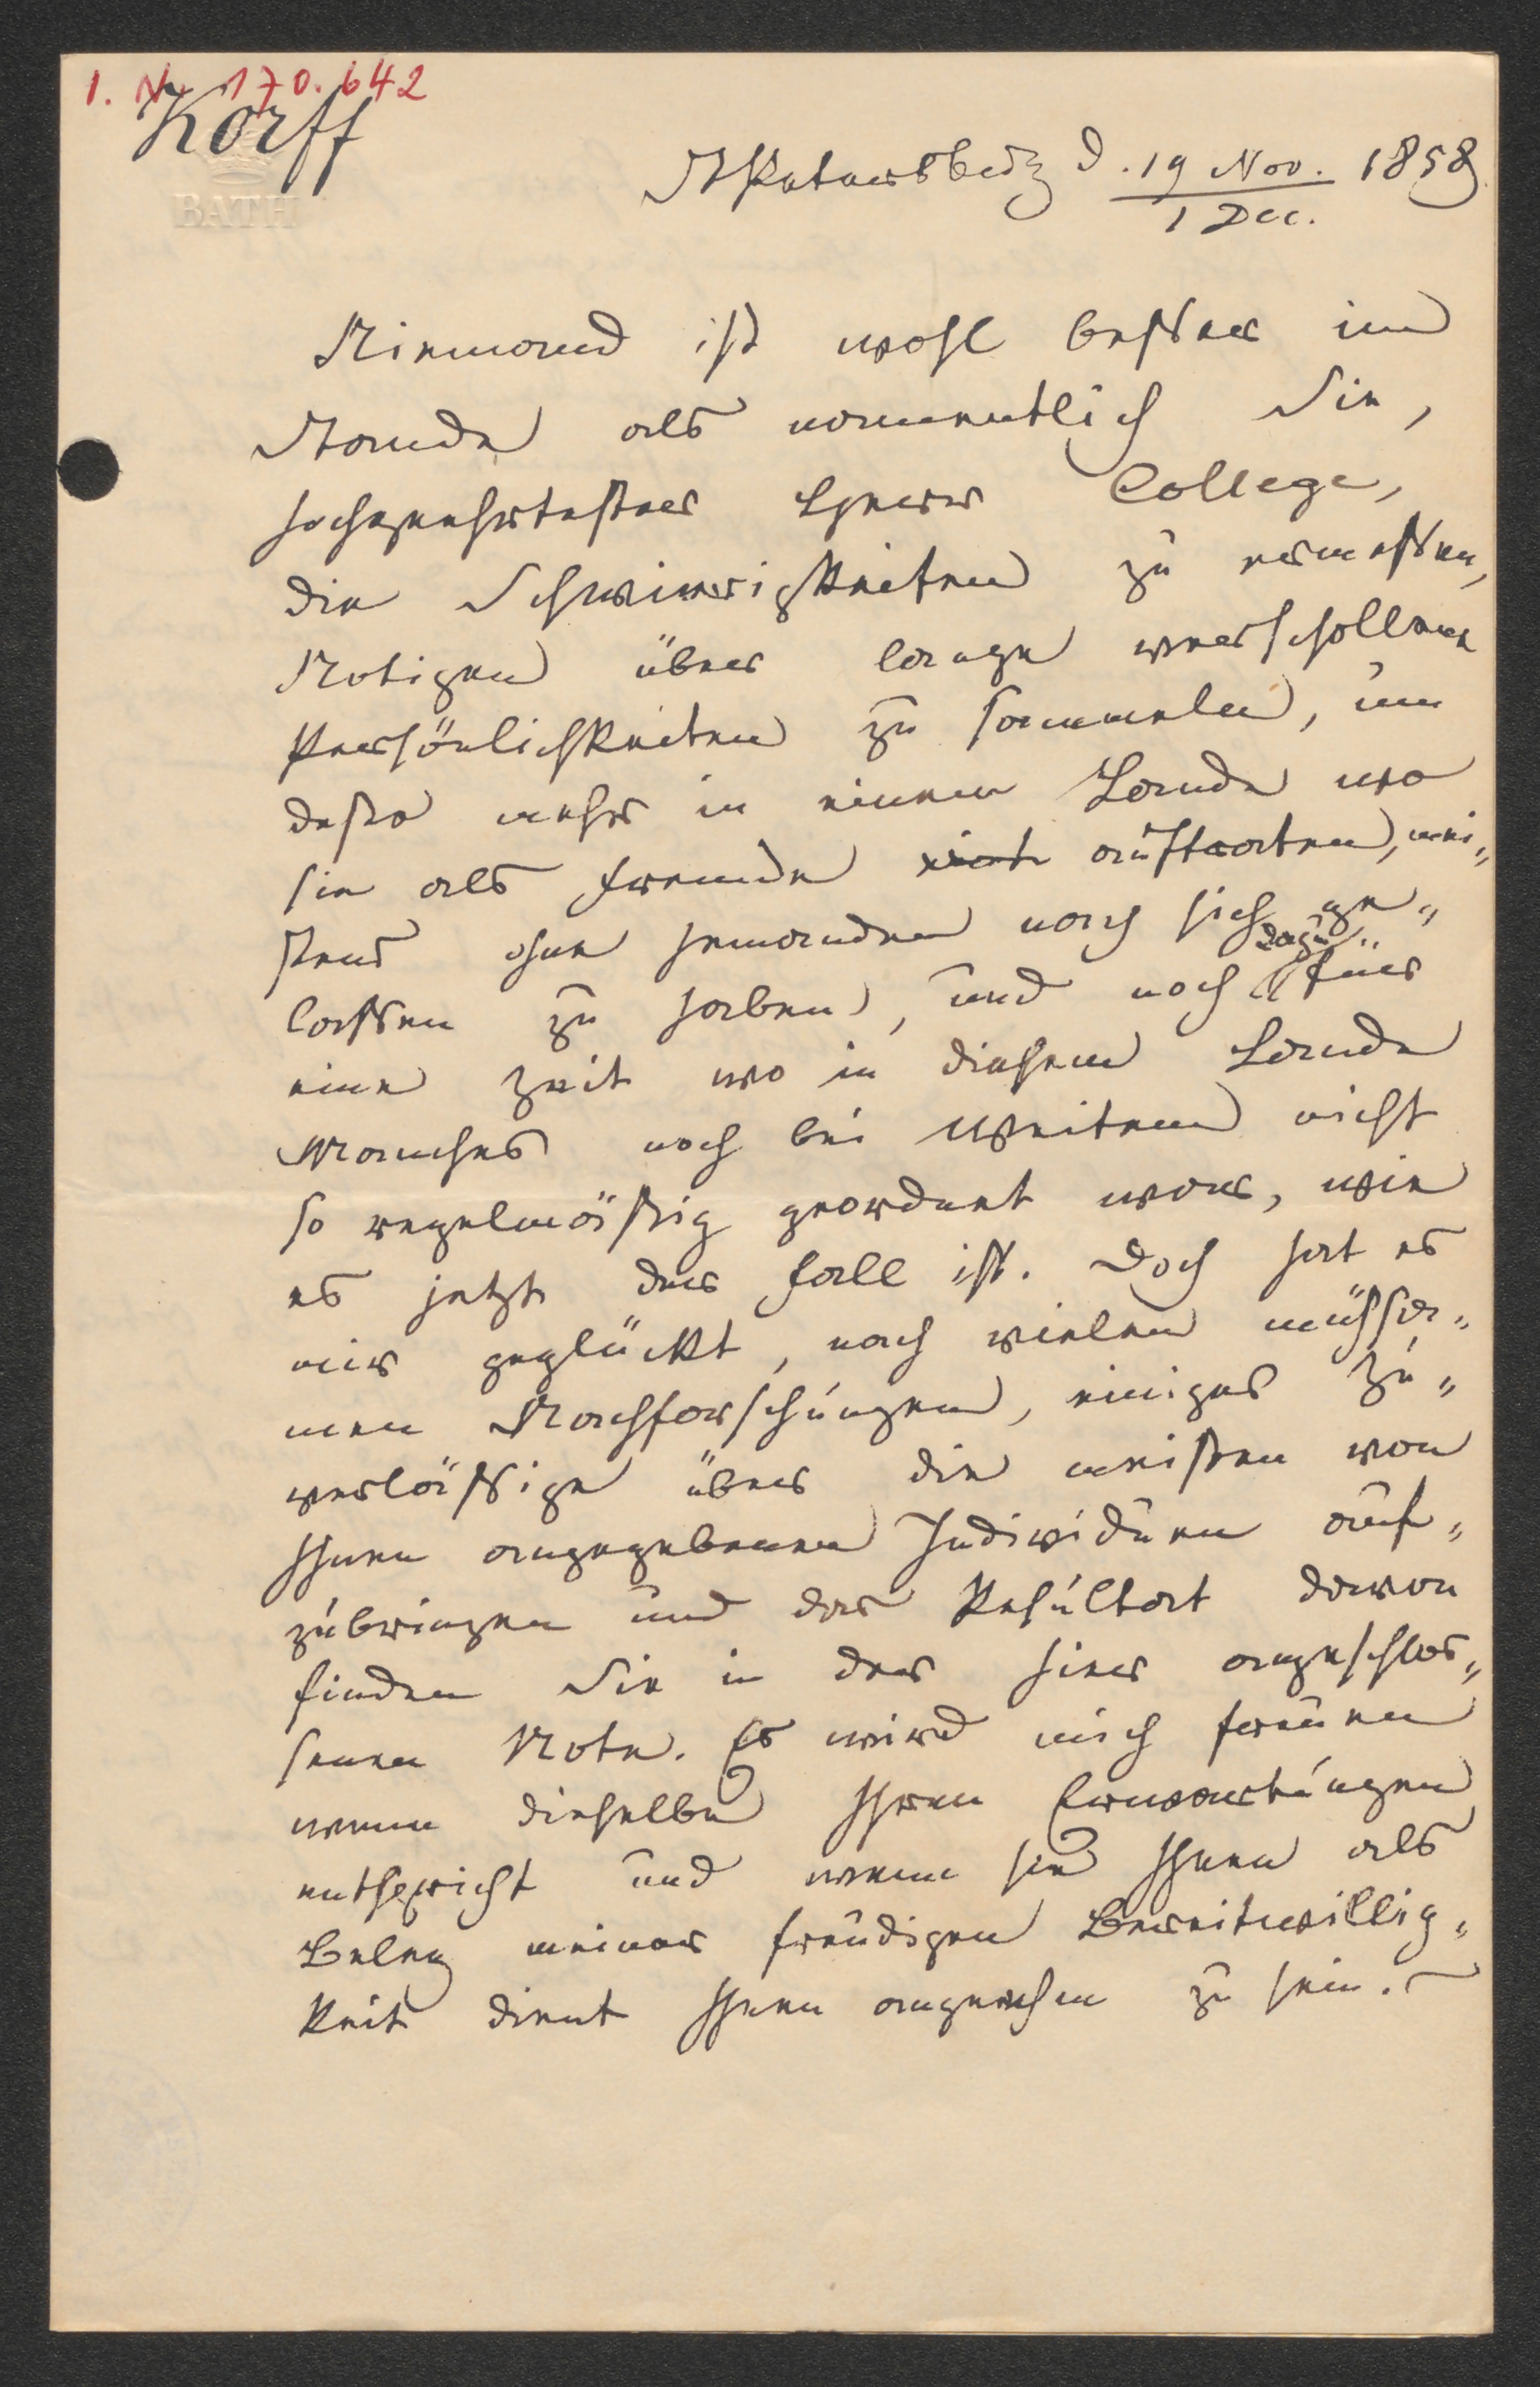 I. N. 170.642
Korff
BATH
St Petersburg d. 19 Nov. 1858
1 Dec.
Niemand ist wohl besser im
Stande als namentlich Sie,
hochgeehrtester Herr College,
die Schwierigkeiten zu ermessen,
Notizen über lange verschollene
Persönlichkeiten zu sammeln, um
desto mehr in einem Lande wo
sie als Fremde auftraten, mei„
stens ohne jemanden nach sich ge„
lassen zu haben, und noch dazu für
eine Zeit wo in diesem Lande
Manches noch bei Weitem nicht
so regelmäßig geordnet war, wie
es jetzt der Fall ist. Doch hat es
mir geglückt, nach vielen mühsa„
men Nachforschungen, einiges Zu„
verlässige über die meisten von
Ihnen angegebenen Individuen auf„
zubringen und das Resultat davon
finden Sie in der hier angeschlos„
senen Note. Es wird mich freuen
wenn dieselbe Ihren Erwartungen
entspricht und wenn sie Ihnen als
Beleg meiner freudigen Bereitwillig„
keit dient Ihnen angenehm zu sein.